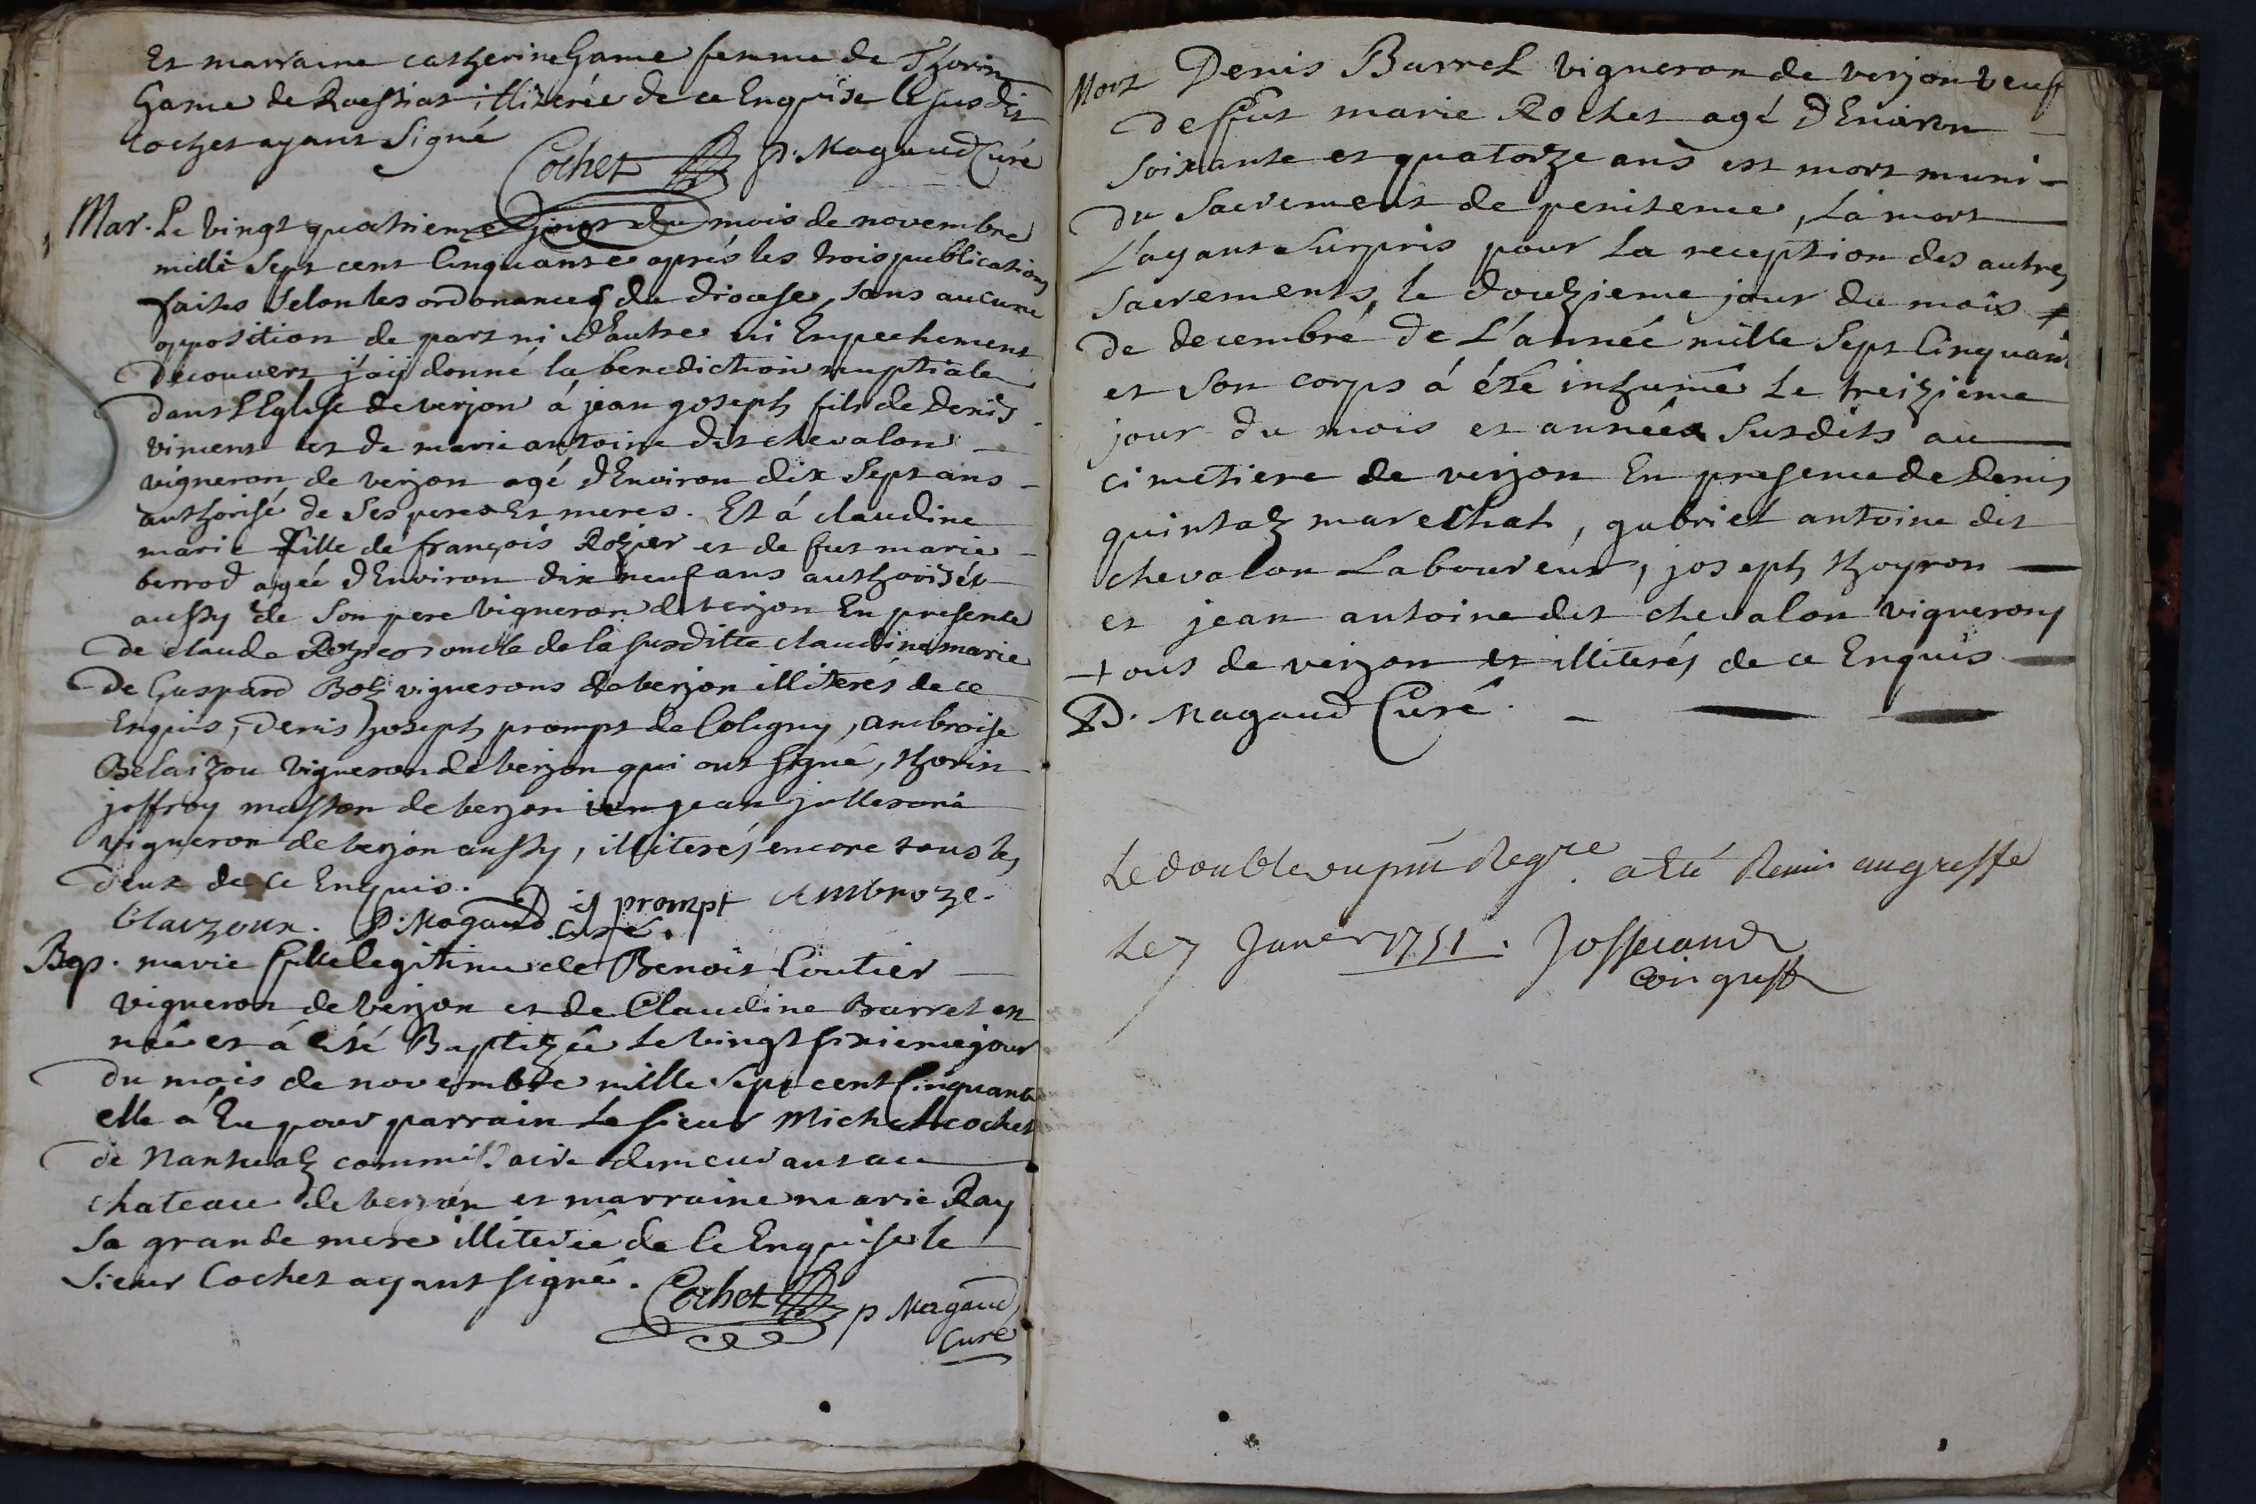 Et marraine catherine Game femme de Thorin
Game de Roissiat illiterée de ce Enquise le susdit
Cochet ayant Signé
Cochet P. Magaud Curé
Mar. Le vingt quatrieme jour du mois de novembre
mille Sept cent Cinquante aprés les trois publications
faites selon les ordonances du diocese, sans aucune
opposition de part ni d'autre ni Empechement
decouvert j'aÿ donné la benediction nuptiale
dans l'Eglise de verjon á jean joseph fils de denis
viment et de marie antoine dit chevalon
vigneron de verjon agé d'Environ dix Sept ans
authorisé de Ses peres Et meres. Et á claudine
marie fille de françois Rozier et de fut marie
berrod agée d'Environ dix neuf ans authorisée
aussy de Son pere vigneron de verjon En presence
de claude Rozier oncle de la susditte claudine marie
de Gaspard Botz vignerons de verjon illiterés de ce
Enquis, denis joseph prompt de Coligny, ambroise
Belaizou vigneron de verjon qui ont signé, thorin
joffroy masson de verjon jean jullerona
vigneron de verjon aussy, illiterés encore tous les
deux de ce Enquis.
prompt Ambroze
blaizoux. P. Magaud Curé.
Bap. marie fille legitime de Benoit Coutier
vigneron de verjon et de Claudine Barret est
née et á été Baptizée le vingt sixieme jour
du mois de novembre mille Sept cent Cinquante
elle á Eu pour parrain le sieur Michel cochet
de Nantuatz commissaire demeurant au
chateau de verjon et marraine marie Ray
sa grande mere illiterée de ce Enquise le
Sieur Cochet ayant signé.
Cochet P Magaud
Curé
Mort Denis Barret vigneron de verjon veuf
de fut marie Rochet agé d'Environ
soixante et quatorze ans est mort muni
du Sacrement de penitence, la mort
L'ayant Surpris pour la reception des autres
sacrements, le douzieme jour du mois
de decembre de L'année mille Sept Cinquante
et Son corps á été inhumé le treizieme
jour du mois et année Susdits au
cimetiere de verjon En presence de Denis
quintatz marechat, gabriel antoine dit
chevalon Laboureur, joseph thoyron
et jean antoine dit chevalon vignerons
tous de verjon et illiterés de ce Enquis
P. Magaud Curé.
Le double du pnt Regre. a Eté Remis au greffe
Le 7 Janer 1751. Josserand
Con greff